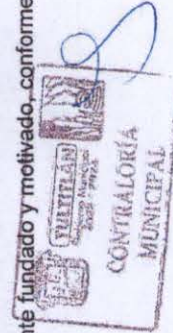 nte fundado y motivado, conforme
TULTITLÁN
CONTRALORÍA
MUNICIPAL